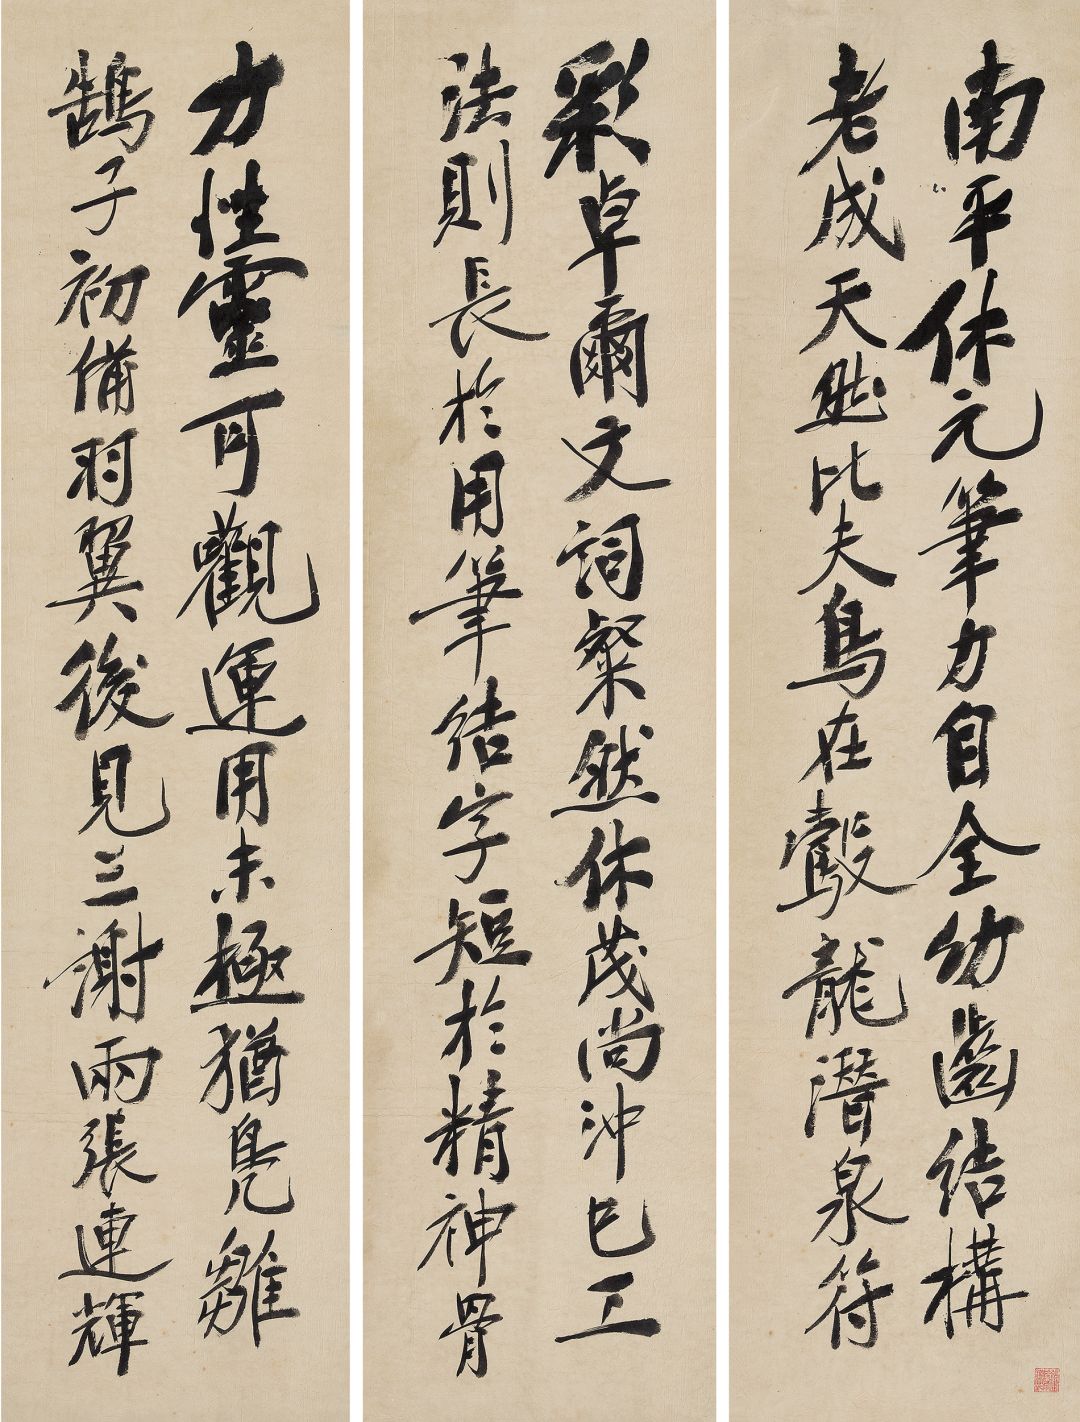 南平休元筆力自全幼齒結構
老成天然比夫鳥在鷇龍潛泉符
彩卓爾文詞粲然休茂尚沖已工
法則長於用筆結字短於精神骨
力性靈可觀運用未極猶鳧雛
鵠子初備羽翼後見三謝兩張連輝